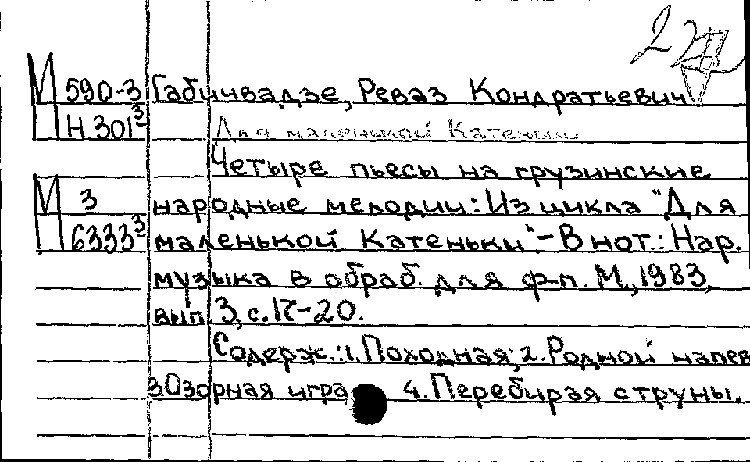 М 590-3 Габичвадзе, Реваз Кондратьевич
Н 301³
Для маленькой Катеньки
Четыре пьесы на грузинские
М 3 народные мелодии: Из цикла "Для
6333³ маленькой Катеньки".-В нот.: Нар.
музыка в обраб. для ф-п. М., 1983,
вып. 3, с.17-20.
Содерж.: 1. Походная; 2. Родной напев
3. Озорная игра 4. Перебирая струны.